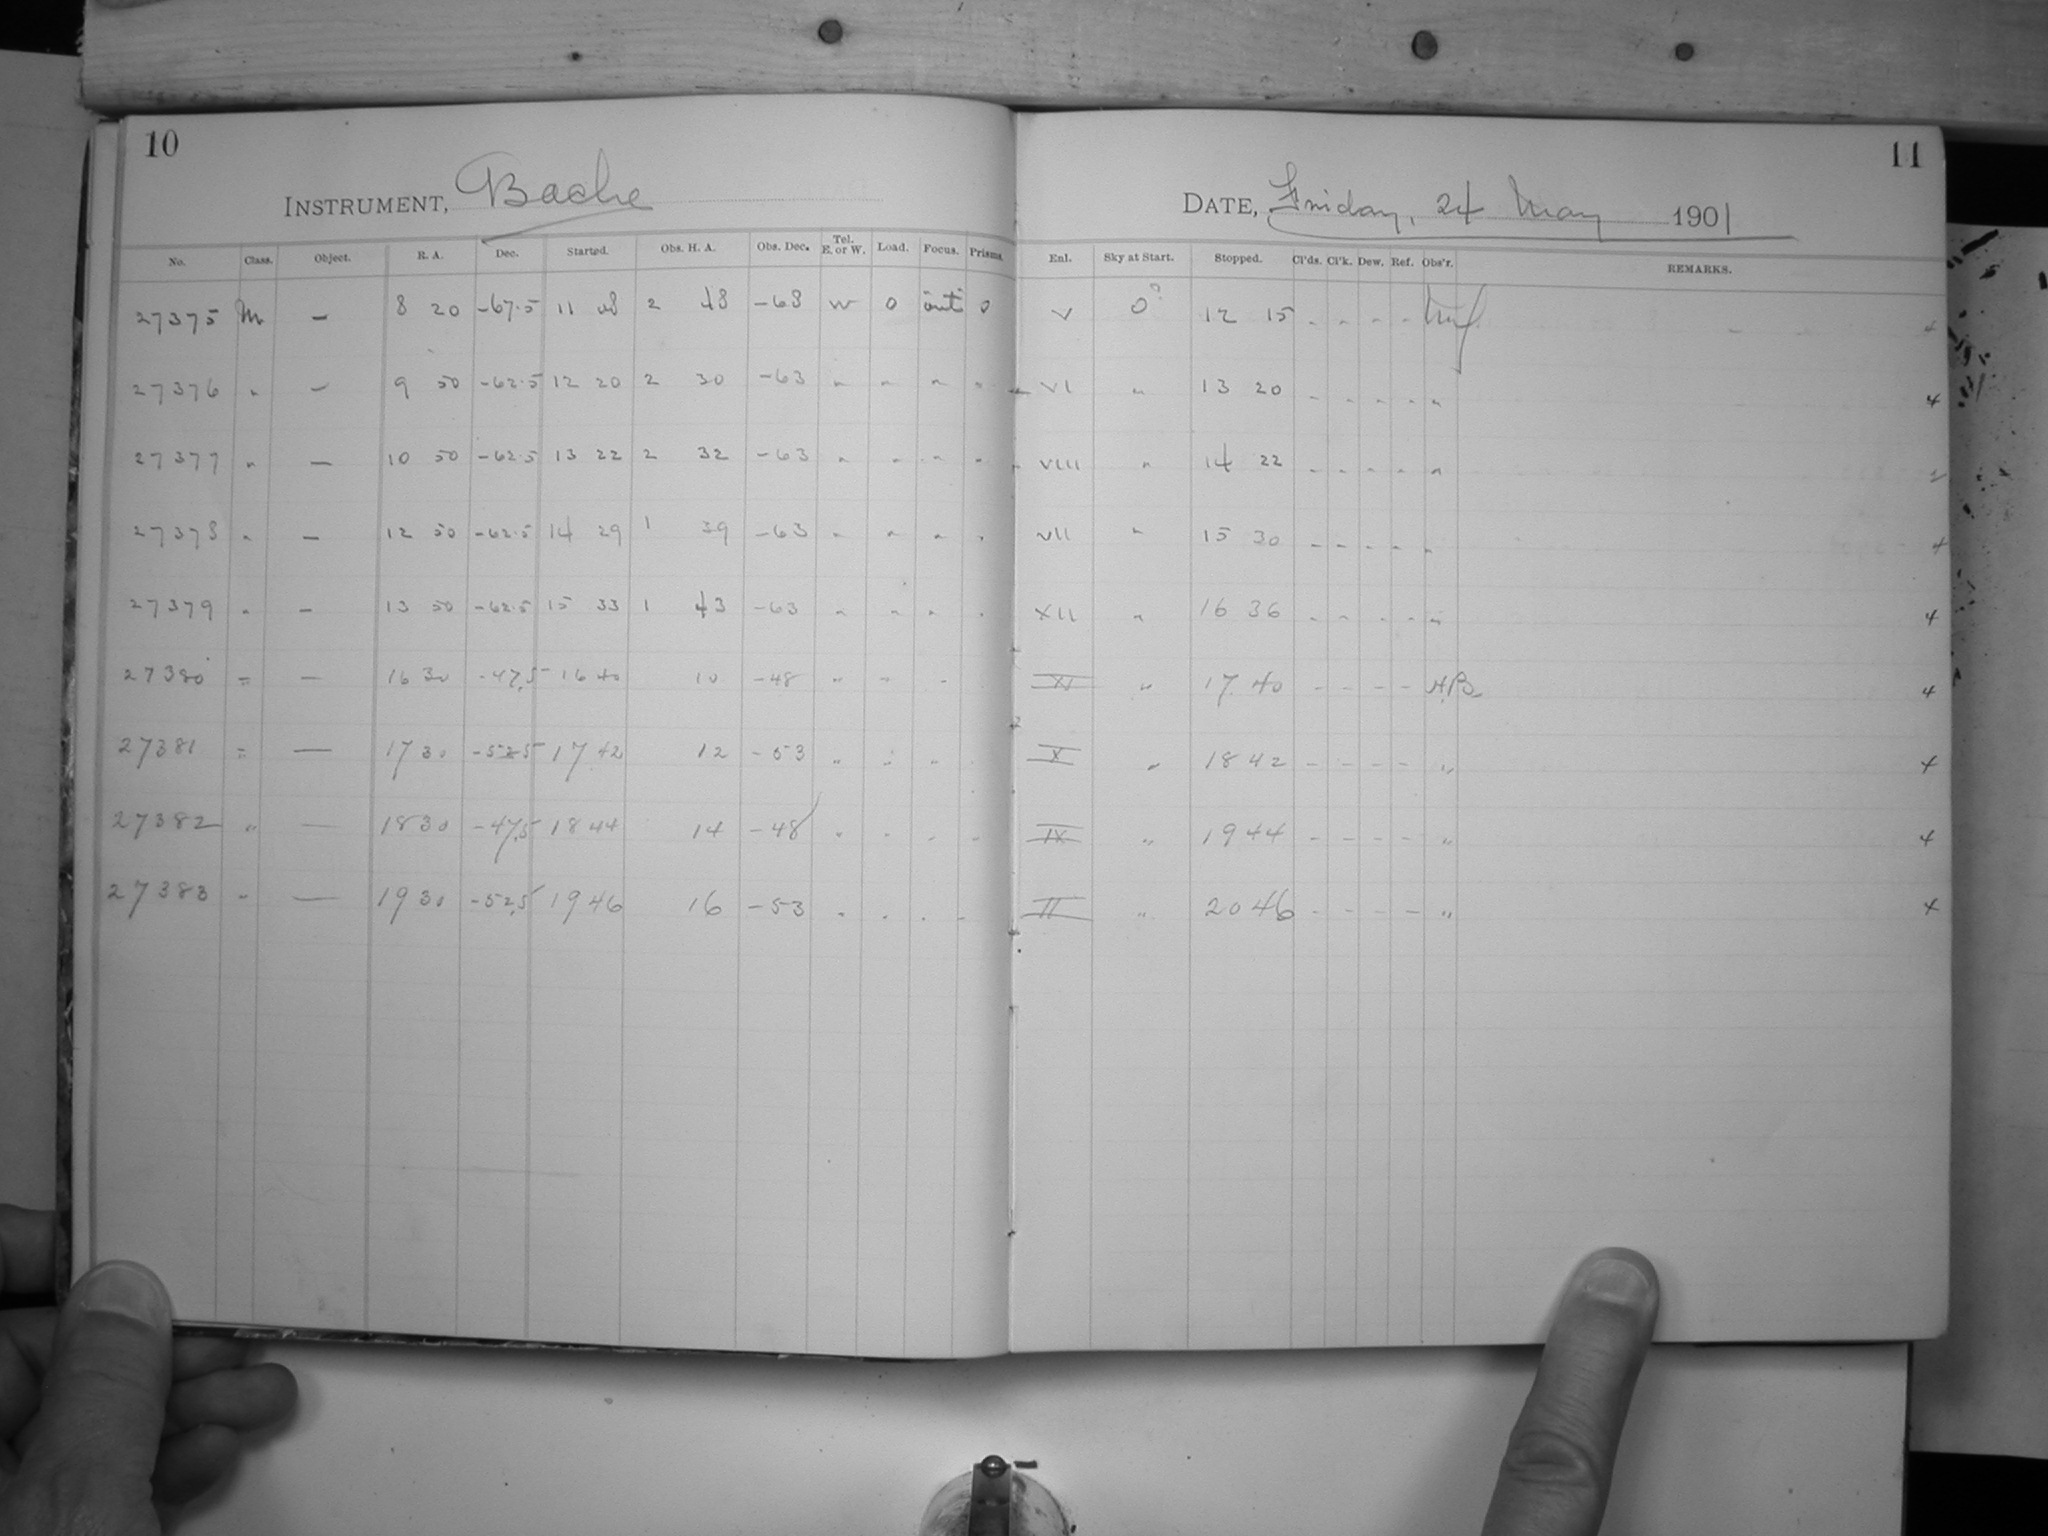 10
INSTRUMENT, Bache
No. Class. Object. R. A. Dec. Started. Obs. H. A. Obs. Dec. Tel. E. or W. Load. Focus. Prisms.
27375 M — 8 20 -67.5 11 08 2 48 -68 W 0 0
27376 " — 9 50 -62.5 12 20 2 30 -63 " " " "
27377 " — 10 50 -62.5 13 22 2 32 -63 " " " "
27378 " — 12 50 -62.5 14 29 1 39 -63 " " " "
27379 " — 13 50 -62.5 15 33 1 43 -63 " " " "
27380 " — 16 30 -47.5 16 40 10 -48 " " "
27381 " — 17 30 -52.5 17 42 12 -53 " " " "
27382 " — 18 30 -47.5 18 44 14 -48 " " " "
27383 " — 19 30 -52.5 19 46 16 -53 " " " "
11
DATE, Friday, 24 May 1901
Enl. Sky at Start. Stopped. Cl'ds. Cl'k. Dew. Ref. Obs'r. REMARKS.
V 0 12 15 - - - -
VI " 13 20 - - - - " 4
VIII " 14 22 - - - - "
VII " 15 30 - - - - " 4
XII " 16 36 - - - - " 4
XI " 17 40 - - - - 4
X " 18 42 - - - - " 4
IX " 19 44 - - - - " 4
II " 20 46 - - - - " 4